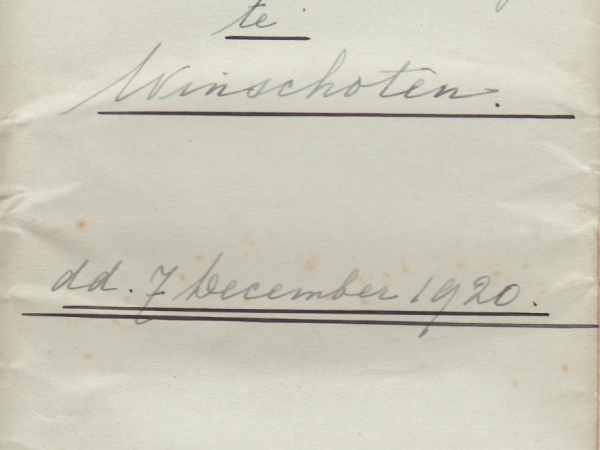 te
Winschoten.
dd. 7 December 1920.